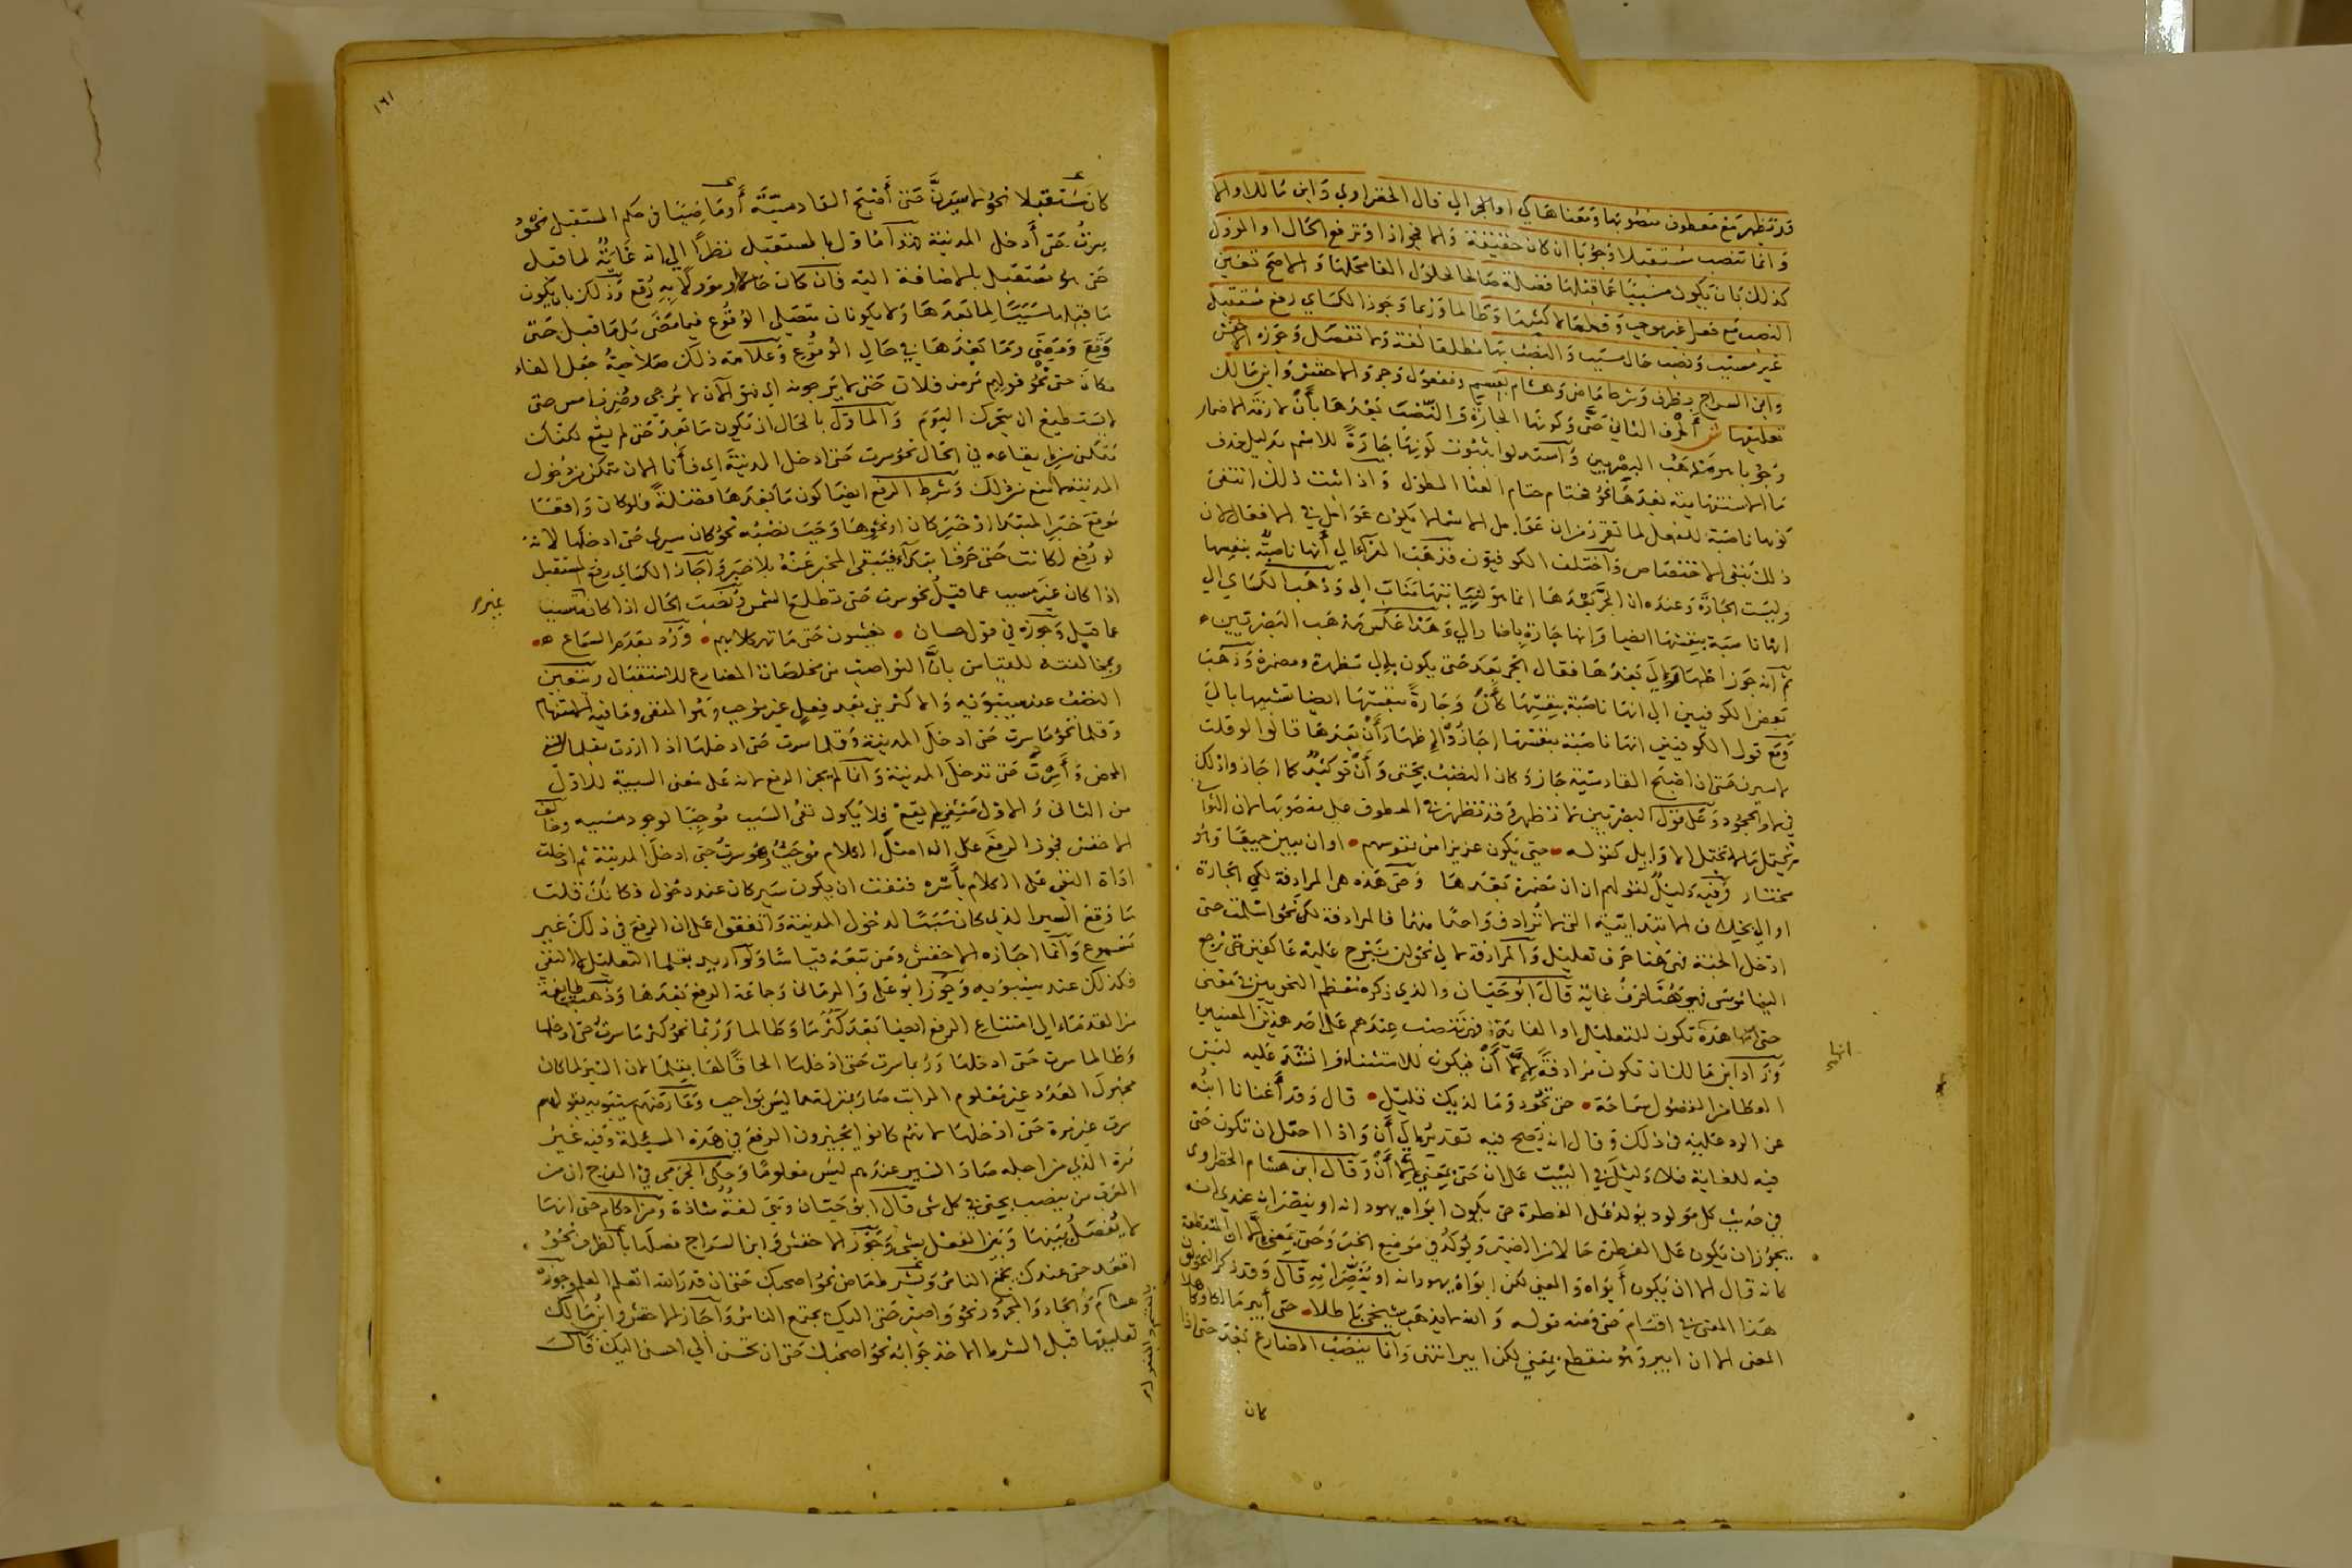 قد تظهر مع معطوف منصوبها ومعناها كي او الى قال الخضراوي وابن مالك او الا
وانما تنصب مستقبلا وجوبا ان كان حقيقة والا فجوازا وترفع الحال او المؤول
كذلك بان يكون مسببا عما قبلها فضلة صالحا لحلول الفا محلها والاصح تعين
النصب مع فعل غير موجب وقلما لا كثر ما وطالما وربما وجوز الكساي رفع مستقبل
غير مسبب ونصب حال مسبب والنصب بها مطلقا لغة ولا تفصل وجوزه الاخفش
وابن السراج بظرف وشرط ماض وهشام بقسم ومفعول وجر والاخفش وابن مالك
تعليقها ش الحرف الثاني حتى وكونها الجارة والنصب بعدها بان لازمة الاضمار
وجوبا هو مذهب البصريين واستدلوا بثبوت كونها جارة للاسم بدليل حذف
ما الاستفهامية بعدها نحو فحتام حتام العنا المطول واذا ثبت ذلك انتفى
كونها ناصبة للفعل لما تقرر من ان عوامل الاسماء لا يكون عوامل في الافعال لان
ذلك ينفي الاختصاص واختلف الكوفيون فذهب الفراء الى أنها ناصبة بنفسها
وليست الجارة وعنده ان الجر بعدها انما هو لنيابتها مناب الى وذهب الكساي الى
انها ناصبة بنفسها ايضا وانها جارة باضمار الى وهذا عكس مذهب البصريين
ثم انه جوز اظهار الى بعدها فقال الجر بعد حتى يكون بالى مظهرة ومضمرة وذهب
بعض الكوفيين الى انها ناصبة بنفسها كأن وجارة بنفسها ايضا تشبيها بالى
ومع قول الكوفيين انها ناصبة بنفسها اجازوا اظهار أن بعدها قالوا لو قلت
لاسيرن حتى ان اصبح القادسية جاز وكان النصب بحتى وأن توكيد كما اجازوا ذلك
في لام الجحود وعلى قول البصريين لا تظهر وقد تظهر في المعطوف على منصوبها لان الثواني
تحتمل ما لا تحتمل الاوايل كقوله • حتى يكون عزيزا من نفوسهم • او ان يبين جميعا وهو
مختار وفيه دليل لقولهم ان ان مضمرة بعدها وحتى هذه هي المرادفة لكي الجارة
او الى بخلاف الابتدائية التي لا ترادف واحدا منهما فالمرادفة لكي نحو اسلمت حتى
ادخل الجنة فهي هنا حرف تعليل والمرادفة لالى نحو لن نبرح عليه عاكفين حتى يرجع
الينا موسى فهي هنا حرف غاية قال ابو حيان والذي ذكره معظم النحويين في معنى
حتى هذه تكون للتعليل او الغاية فهي تنصب عندهم على احد هذين المعنيين
وزاد ابن مالك ان تكون مرادفة إلا أن فيكون للاستثناء وانشد عليه ليس
العطا من الفضول سماحة • حتى تجود وما لديك قليل • قال وقد أغنانا ابنه
عن الرد عليه في ذلك وقال انه يصح فيه تقدير الى أن واذا احتمل ان تكون حتى
فيه للغاية فلا دليل في البيت على ان حتى بمعنى إلا أن وقال ابن هشام الخضراوي
في حديث كل مولود يولد على الفطرة حتى يكون ابواه يهودانه او ينصرانه عندي انه
يجوز ان يكون على الفطرة حالا من الضمير ويولد في موضع الخبر وحتى بمعنى إلا ان المنقطعة
كانه قال الا ان يكون أبواه والمعنى لكن ابواه يهودانه او ينصرانه قال وقد ذكر النحويون
هذا المعنى في اقسام حتى ومنه قوله والله لا يذهب شيخي باطلا • حتى أبير مالكا وكاهلا
المعنى الا ان ابير وهو منقطع بمعنى لكن ابير انتهى وانما ينصب المضارع بعد حتى اذا
كان
انها
١٦١
كان مستقبلا نحو لاسيرن حتى أصبح القادسية أو ماضيا في حكم المستقبل نحو
سرت حتى أدخل المدينة فهذا ماول بالمستقبل نظرا الى انه غاية لما قبل
حتى فهو مستقبل بالاضافة اليه فان كان حالا او مؤولا به رفع وذلك بان يكون
ما قبلها سببا لما بعدها ولا يكونان متصلي الوقوع فيما مضى بل ما قبل حتى
وقع ومضى وما بعدها في حال الوقوع وعلامة ذلك صلاحية جعل الفاء
مكان حتى نحو قولهم مرض فلان حتى لا يرجونه اي فهو الآن لا يرجى وضرب امس حتى
لا يستطيع ان يتحرك اليوم والماول بالحال ان يكون ما بعد حتى لم يقع لكنك
متمكن من ايقاعه في الحال نحو سرت حتى ادخل المدينة اي فأنا الان متمكن من دخول
المدينة لا امنع من ذلك وشرط الرفع ايضا كون ما بعدها فضلة فلو كان واقعا
موقع خبر المبتدا او خبر كان ونحوها وجب نصبه نحو كان سيري حتى ادخلها لانه
لو رفع لكانت حتى حرف ابتداء فيبقى المخبر عنه بلا خبر واجاز الكساي رفع المستقبل
اذا كان غير مسبب عما قبل نحو سرت حتى تطلع الشمس ونصب الحال اذا كان مسببا
عما قبل وجوزه في قول حسان • يغشون حتى ما تهر كلابهم • ورد بعدم السماع
وبمخالفته للقياس بأن النواصب من مخلصات المضارع للاستقبال ويتعين
النصب عند سيبويه والاكثرين بعد فعل غير موجب وهو المنفى وما فيه الاستفهام
وقلما نحو ما سرت حتى ادخل المدينة وقلما سرت حتى ادخلها اذا اردت بقلما النفي
المحض وأسرت حتى تدخل المدينة وانما لم يجز الرفع لانه على معنى السببية للاول
من الثاني والاول منفي لم يقع فلا يكون نفى السبب موجبا لوجود مسببه وخالف
الاخفش فجوز الرفع على ان اصل الكلام موجب وهو سرت حتى ادخل المدينة ثم ادخلت
اداة النفي على الكلام بأسره فنفت ان يكون سير كان عنده دخول فكانك قلت
ما وقع السير الذي كان سببا لدخول المدينة واتفقوا على ان الرفع في ذلك غير
مسموع وانما اجازه الاخفش ومن تبعه قياسا ولو اريد بقلما التقليل لا النفي
فكذلك عند سيبويه وجوز ابو على والرماني وجماعة الرفع بعدها وذهب طايفة
من القدماء الى امتناع الرفع ايضا بعد كثر ما وطالما وربما نحو كثر ما سرت حتى ادخلها
وطالما سرت حتى ادخلها وربما سرت حتى ادخلها الحاقا لها بقلما لان السير لما كان
مجهول العدد غير معلوم المرات صار بمنزلة ما ليس بواجب وعارضهم سيبويه بقولهم
سرت غير مرة حتى ادخلها لانهم كانوا يجيزون الرفع في هذه المسئلة وفيه غير
مرة الذي من اجله صار السير عندهم ليس معلوما وحكى الجرمي في الفرخ ان من
العرب من ينصب بحتى في كل شى قال ابو حيان وهي لغة شاذة ومن احكام حتى انها
لا يفصل بينها وبين الفعل بشى وجوز الاخفش وابن السراج فصلها بالظرف نحو
اقعد حتى عندك يجتمع الناس وبشرط ماض نحو اصحبك حتى ان قدر الله اتعلم العلم وجوزه
هشام والجار والمجرور نحو واصبر حتى اليك يجتمع الناس واجاز الاخفش وابن مالك
تعليقها قبل الشرط الاخذ جوابه نحو اصحبك حتى ان تحسن الي احسن اليك قال
بالقسم والمفعول به